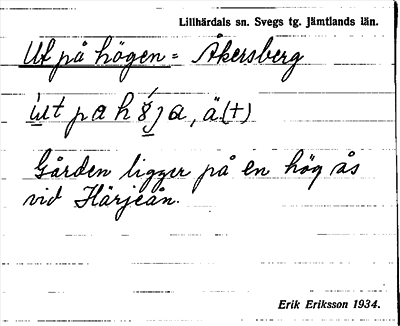 Lillhärdals sn. Svegs tg. Jämtlands län.
Ut på högen = Åkersberg
ut pa h a, ä.(+)
Gården ligger på en hög ås
vid Härjeån.
Erik Eriksson 1934.